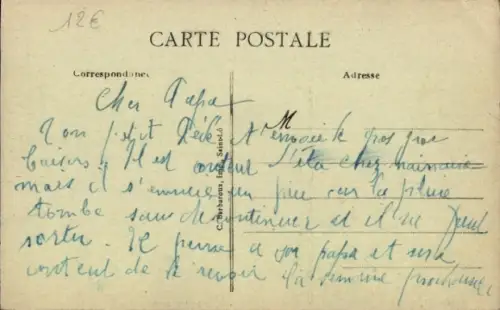 12€
CARTE POSTALE
Correspondance
Adresse
Cher Papa
M
Ton petit t'envoie de gros gros
baisers. Il est content d'être chez
mais il s'ennuie un peu car la pluie
tombe sans discontinuer et il ne peut
sortir. Il pense à son papa et sera
content de le revoir la semaine prochaine
C. Barbaroux, Imp. Saint-Lô